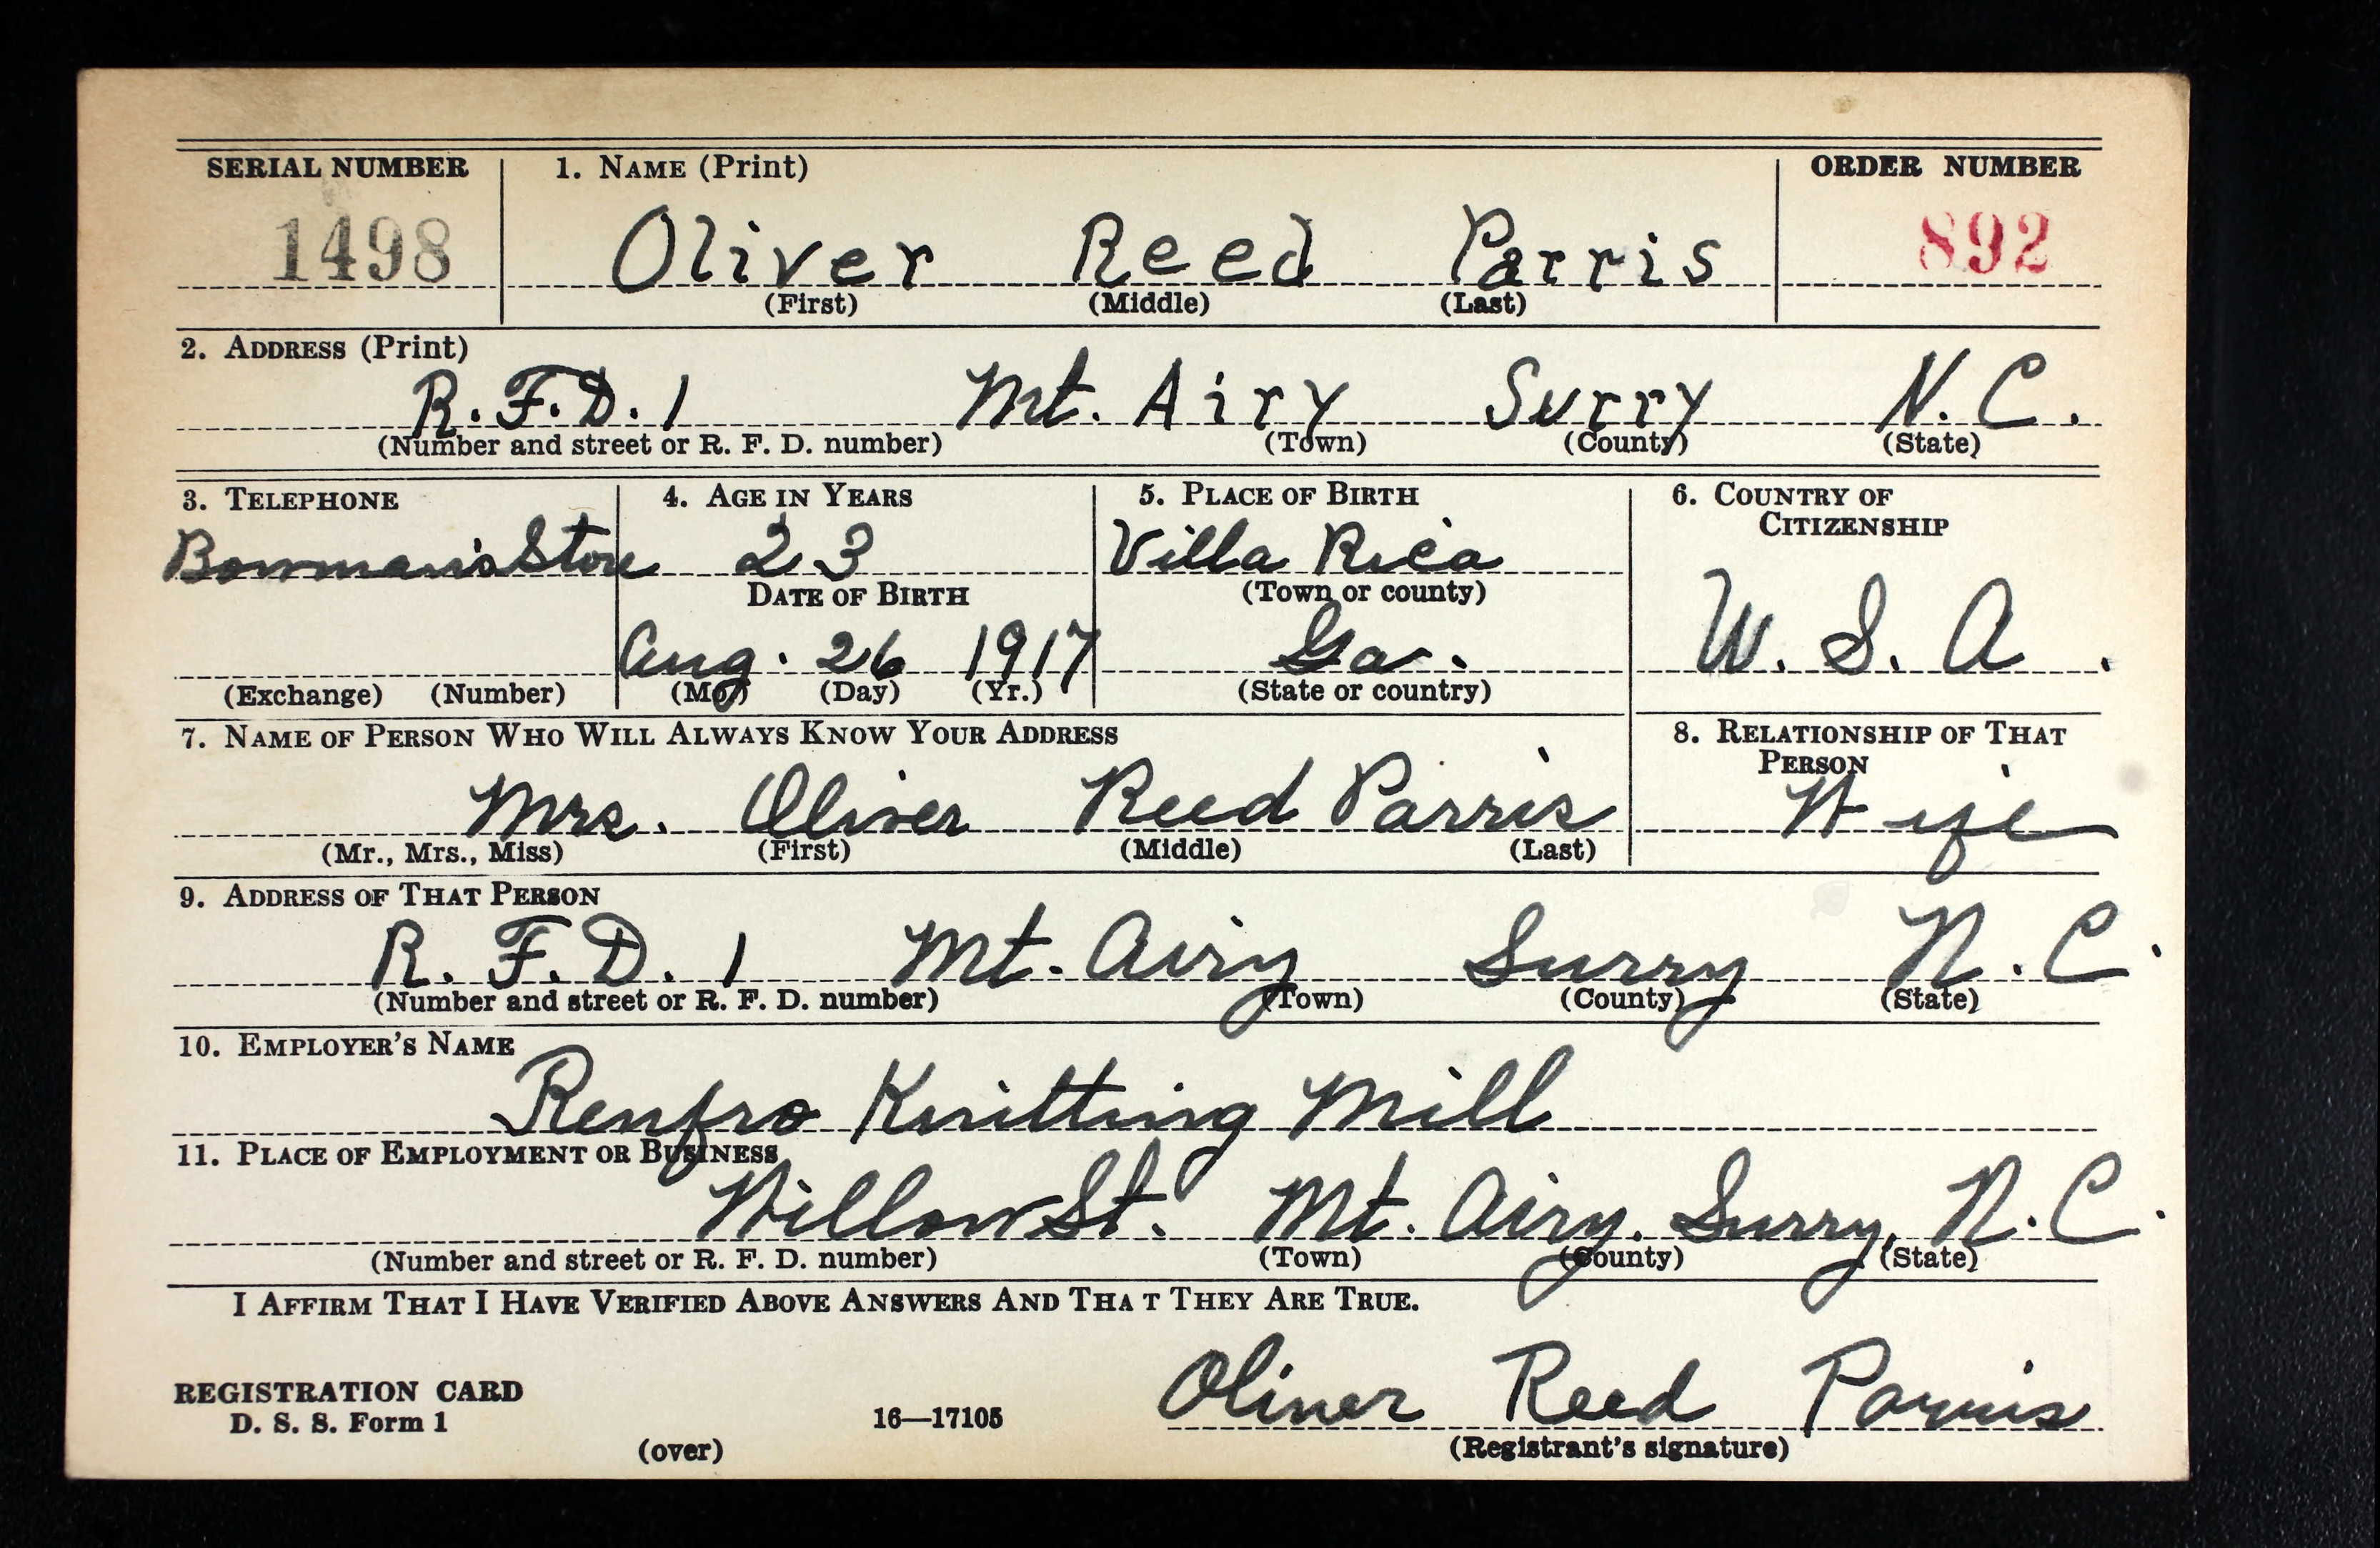 SERIAL NUMBER 1. NAME (Print) ORDER NUMBER
1498 Oliver Reed Parris 892
(First) (Middle) (Last)
2. ADDRESS (Print)
R.F.D. 1 Mt. Airy Surry N.C.
(Number and street or R. F. D. number) (Town) (County) (State)
3. TELEPHONE 4. AGE IN YEARS 5. PLACE OF BIRTH 6. COUNTRY OF
CITIZENSHIP
Bowman's Store 23 Villa Rica
DATE OF BIRTH (Town or county)
Aug. 26 1917 Ga. U. S. A.
(Exchange) (Number) (Mo.) (Day) (Yr.) (State or country)
7. NAME OF PERSON WHO WILL ALWAYS KNOW YOUR ADDRESS 8. RELATIONSHIP OF THAT
PERSON
Mrs. Oliver Reed Parris Wife
(Mr., Mrs., Miss) (First) (Middle) (Last)
9. ADDRESS OF THAT PERSON
R. F. D. 1 Mt. Airy Surry N. C.
(Number and street or R. F. D. number) (Town) (County) (State)
10. EMPLOYER'S NAME
Renfro Knitting Mill
11. PLACE OF EMPLOYMENT OR BUSINESS
Willow St. Mt. Airy. Surry, N. C.
(Number and street or R. F. D. number) (Town) (County) (State)
I AFFIRM THAT I HAVE VERIFIED ABOVE ANSWERS AND THA T THEY ARE TRUE.
Oliver Reed Parris
REGISTRATION CARD
D. S. S. Form 1 16—17105
(over) (Registrant's signature)